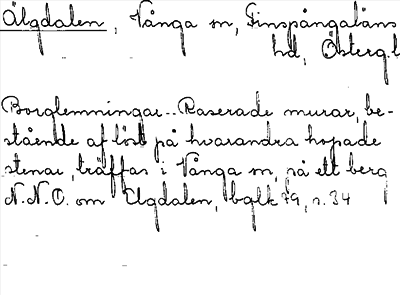 Älgdalen, Vånga sn, Finspångaläns
hd, Österg.l
Borglemningar.. Raserade murar, be-
stående af löst på hvarandra hopade
stenar, träffas i Vånga sn, på ett berg
N.N.O. om Elgdalen, bglk 79, s. 34